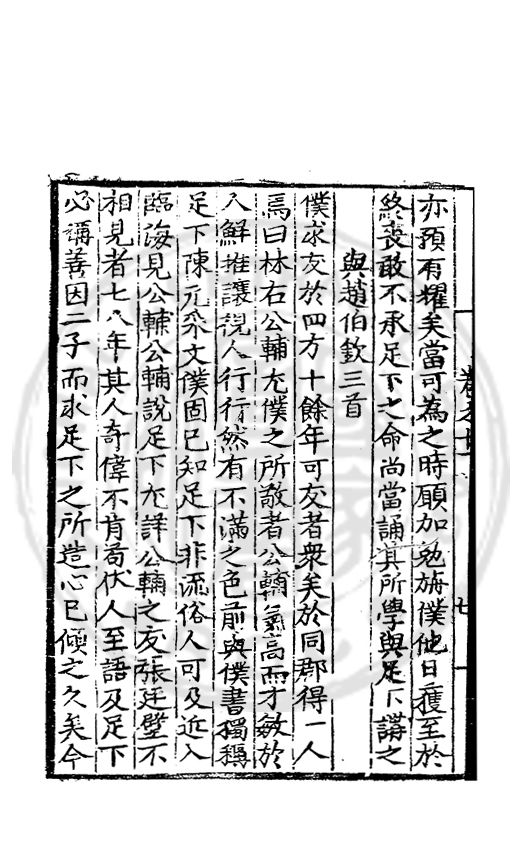 亦預有耀矣當可為之時願加勉旃僕他日獲至於
終喪敢不承足下之命尚當誦其所學與足下講之
與趙伯欽三首
僕求友於四方十餘年可交者衆矣於同郡得一人
焉曰林右公輔尤僕之所敬者公輔氣高而才敏於
人鮮推讓視人行行然有不滿之色前與僕書獨稱
足下陳元采文僕固已知足下非流俗人可及近入
臨海見公輔公輔說足下尤詳公輔之友張廷璧不
相見者七八年其人奇偉不肯苟伏人至語及足下
必稱善因二子而求足下之所造心已傾之久矣今